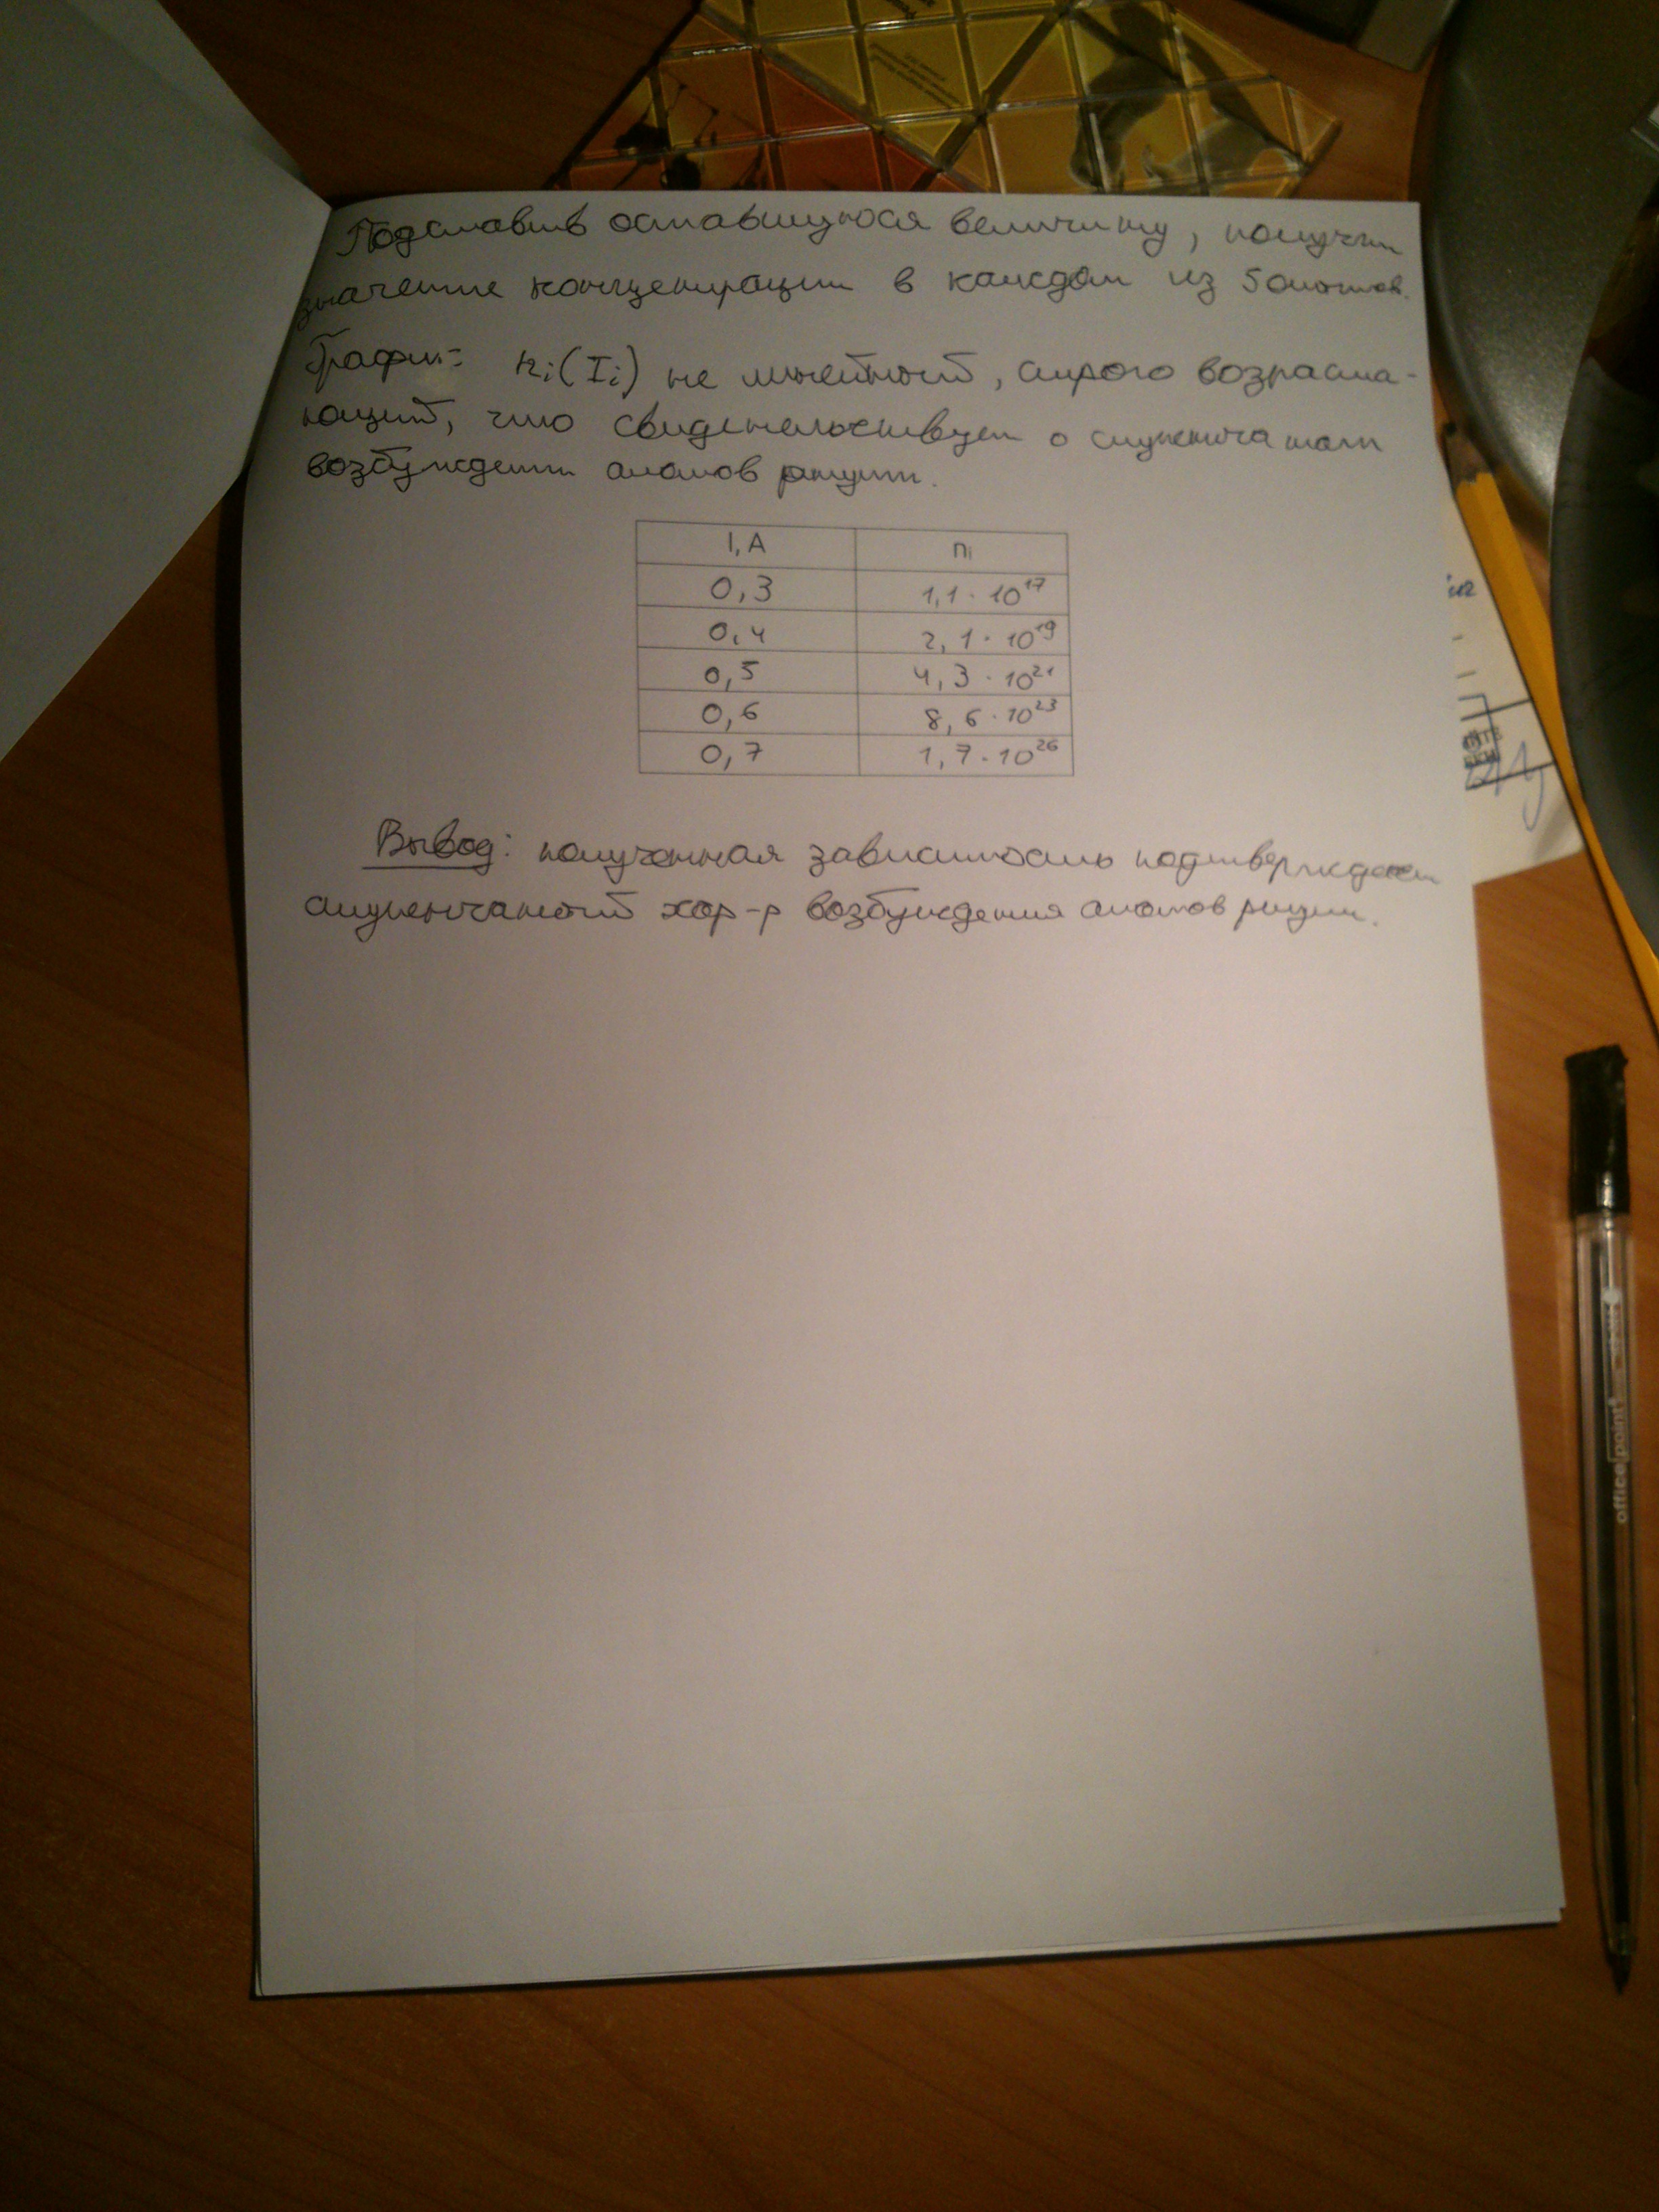 Подставив оставшуюся величину, получим
значение концентрации в каждом из 5 опытов.
График nᵢ(Iᵢ) не линейный, строго возраста-
ющий, что свидетельствует о ступенчатом
возбуждении атомов ртути.
I, A nᵢ
0,3 1,1 · 10¹⁷
0,4 2,1 · 10¹⁹
0,5 4,3 · 10²¹
0,6 8,6 · 10²³
0,7 1,7 · 10²⁶
Вывод: полученная зависимость подтверждает
ступенчатый хар-р возбуждения атомов ртути.
office point